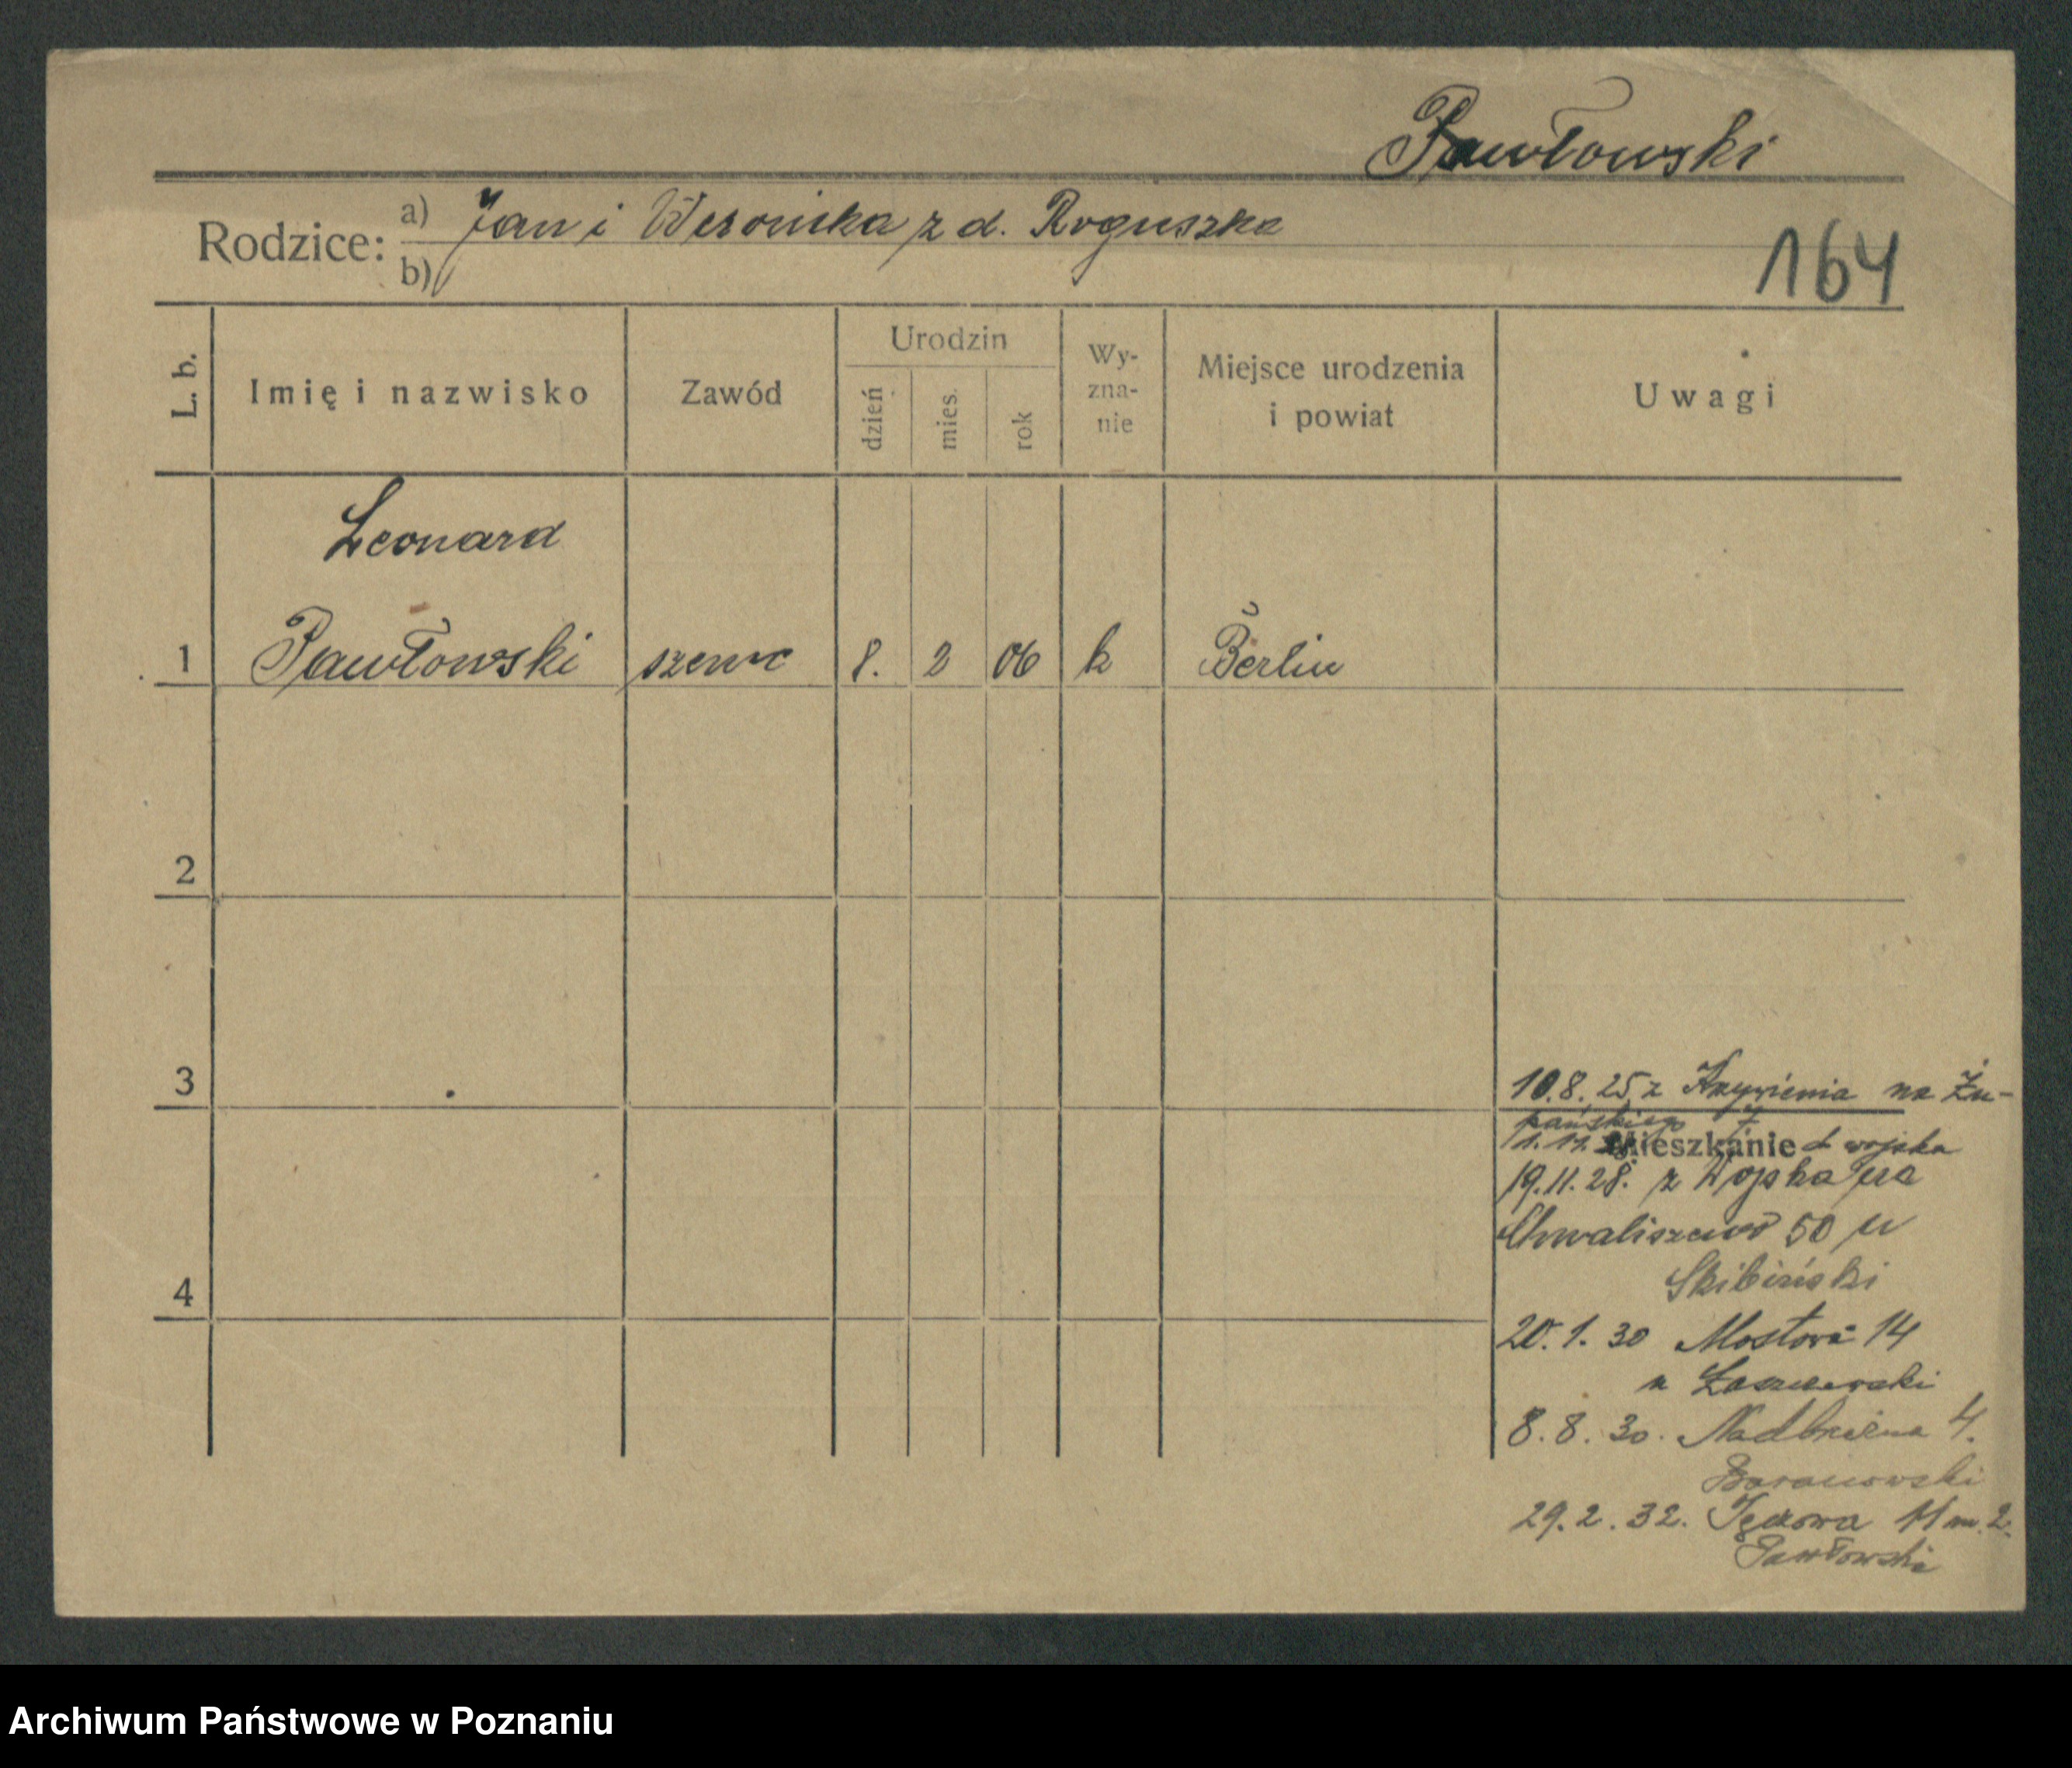 Pawłowski
Rodzice: a) Jan i Weronika z d. Roguszka
b)
164
L. b.
Imię i nazwisko
Zawód
Urodzin
dzień
mies.
rok
Wy-
zna-
nie
Miejsce urodzenia
i powiat
Uwagi
Leonard
1 Pawłowski szewc 8. 2 06 k Berlin
2
3
4
10.8.25 z Krzywinia na Żu-
pańskiego 7
Mieszkanie
1.11. d wojska
19.11.28. z Wojska na
Chwaliszewo 50 u
Skibiński
20.1.30 Mostowa 14
u
8.8.30. Nadbrzeżna 4.
Baranowski
29.2.32. Tęczowa 11 m. 2.
Pawłowski
Archiwum Państwowe w Poznaniu